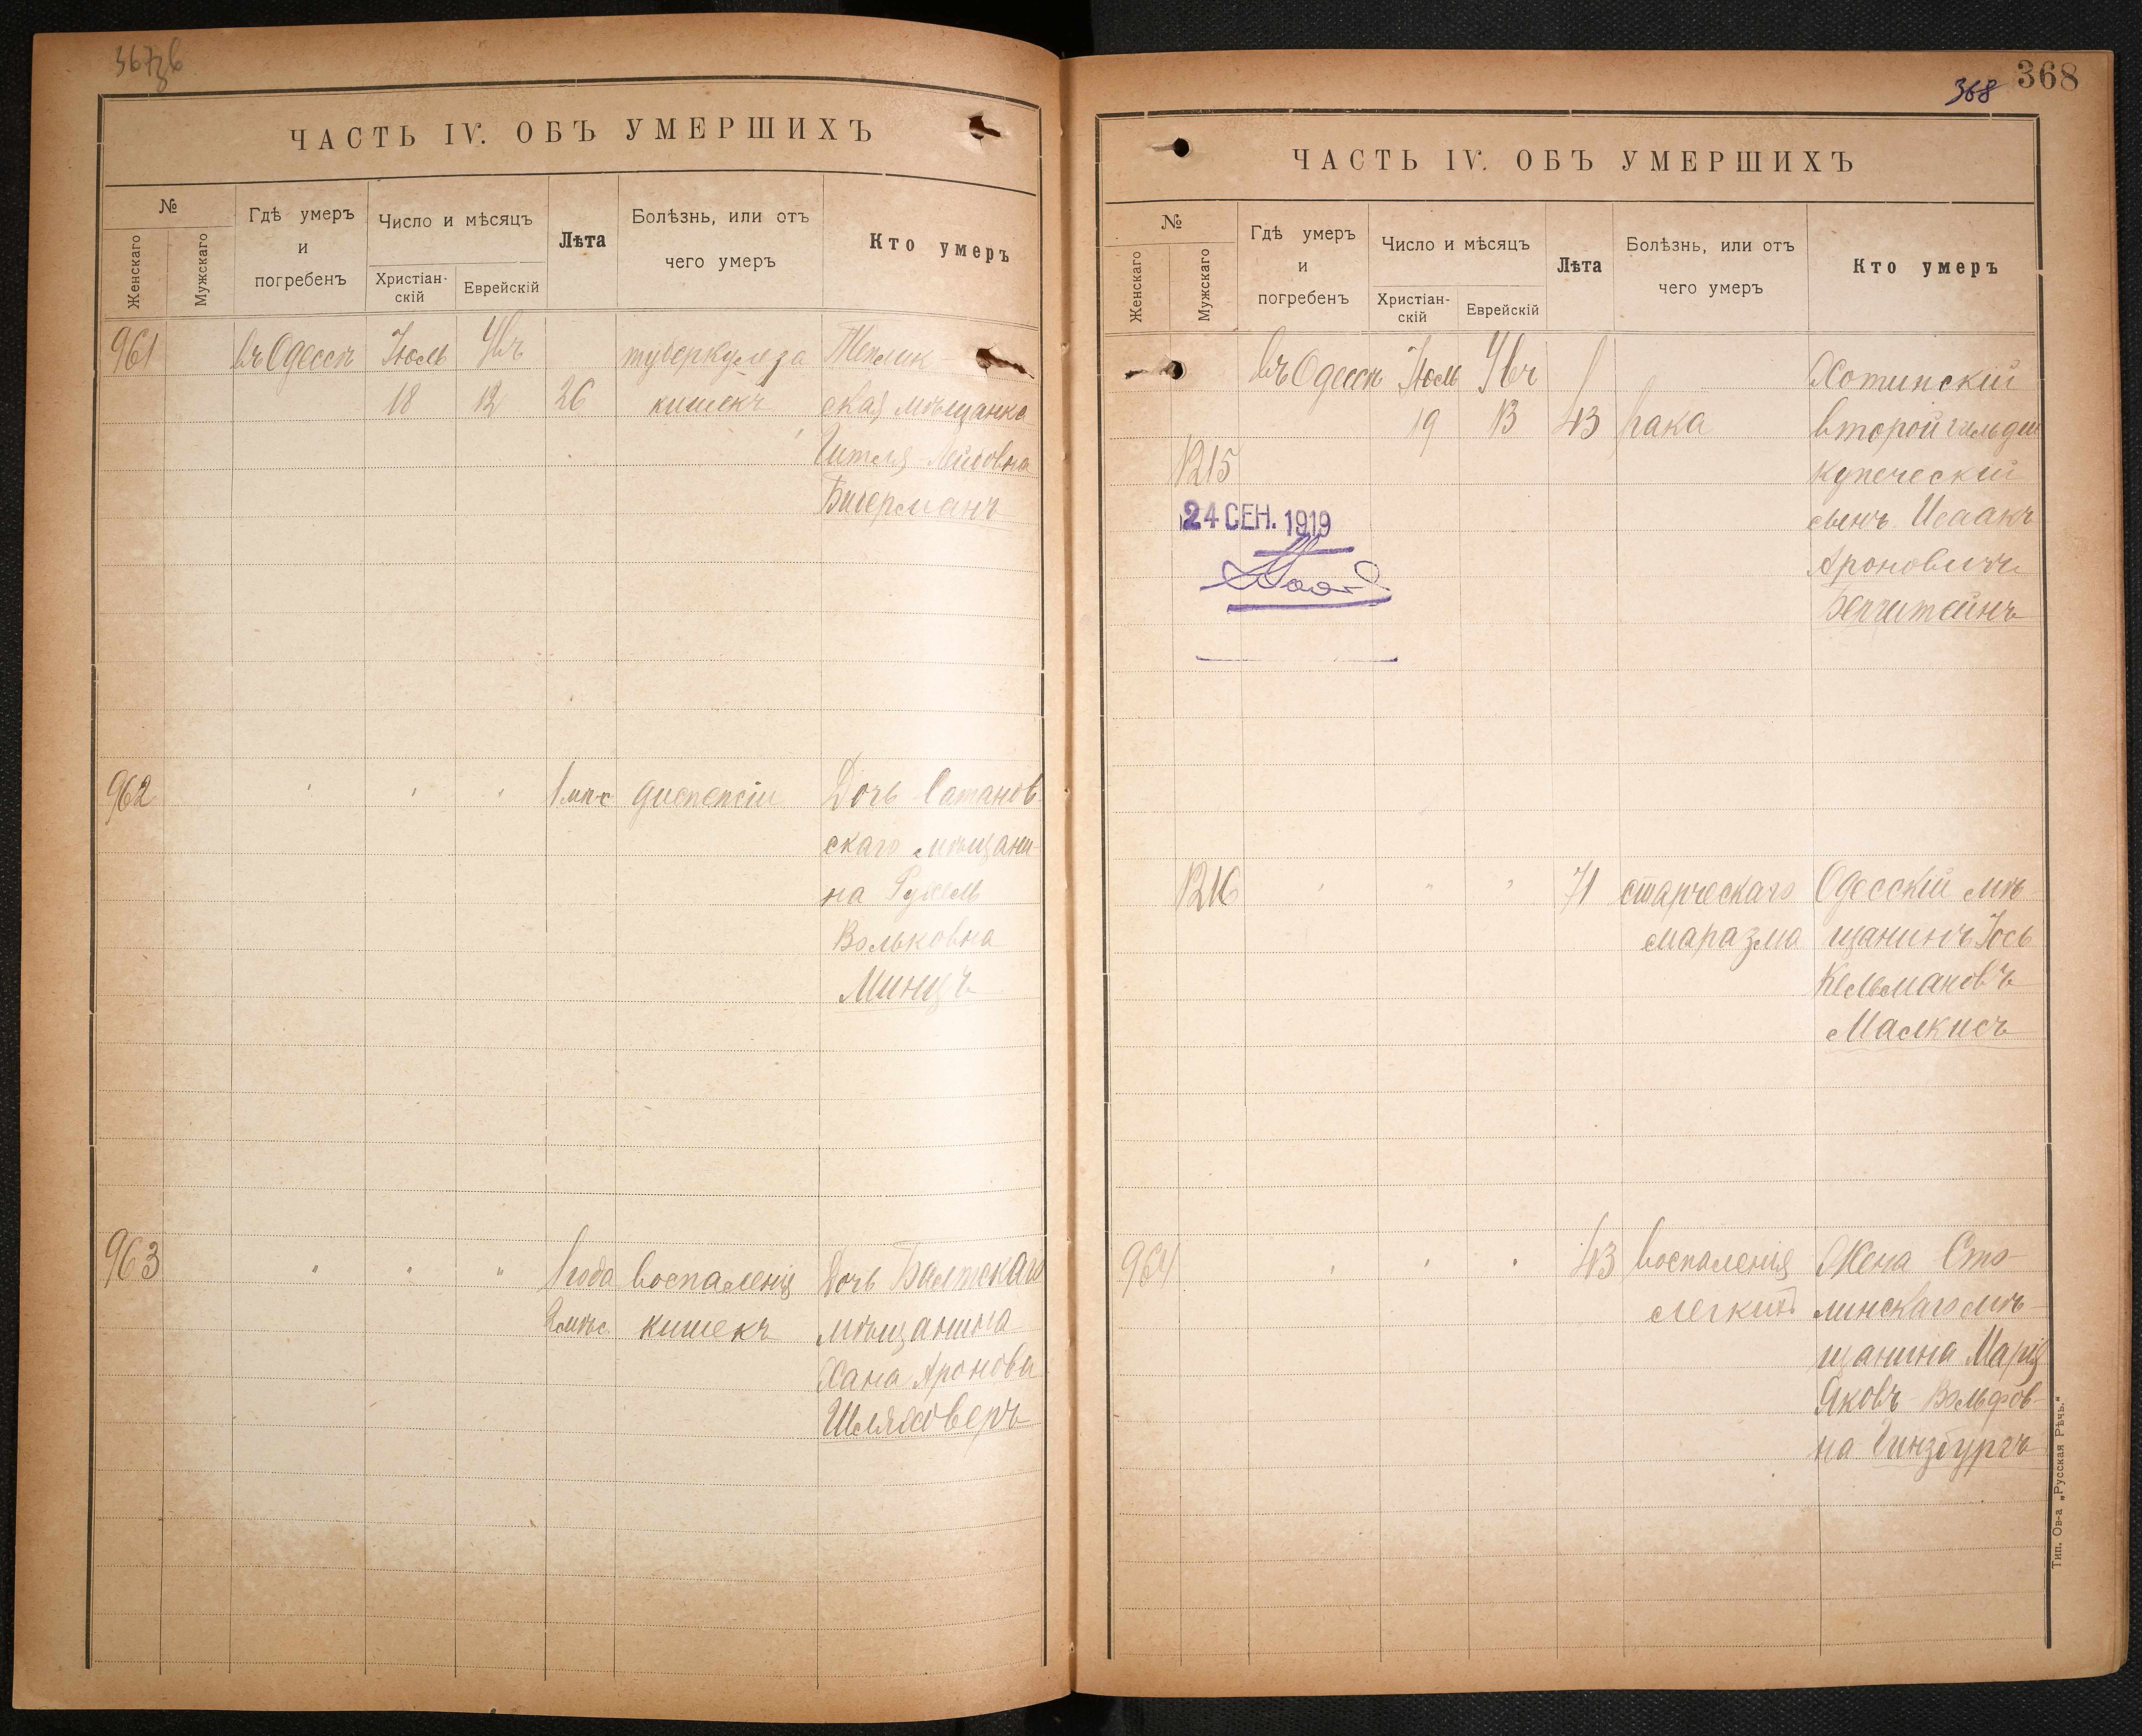 367об
ЧАСТЬ IV. ОБЪ УМЕРШИХЪ
№
Женскаго
Мужскаго
Гдѣ умеръ
и
погребенъ
Число и мѣсяцъ
Христіан-
скій
Еврейскій
Лѣта
Болѣзнь, или отъ
чего умеръ
Кто умеръ
961 въ Одессѣ Іюль Ѳвъ туберкулеза Теплик-
18 12 26 кишекъ ская мѣщанка
Гителя Лейбовна
Бидерманъ
962 " " " 1 мѣс диспепсіи Дочь Сатанов
скаго мѣщани-
на Рухель
Вольковна
Минцъ
963 " " " 1 года воспаленія Дочь Балтскаго
2 мѣс кишекъ мѣщанина
Хана Аронова
Шляховеръ
368
368
ЧАСТЬ IV. ОБЪ УМЕРШИХЪ
№
Женскаго
Мужскаго
Гдѣ умеръ
и
погребенъ
Число и мѣсяцъ
Христіан-
скій
Еврейскій
Лѣта
Болѣзнь, или отъ
чего умеръ
Кто умеръ
въ Одессѣ Іюль Хотинскій
19 13 43 рака второй гильдіи
1215 купеческій
24 СЕН. 1919
сынъ Исаакъ
Ароновичъ
1216 " " " 71 старческаго Одесскій мѣ-
маразма щанинъ Іось
Кельмановъ
Малкисъ
964 " " " 43 воспаленія Жена Сто-
легкихъ линскаго мѣ-
щанина Марія
Яковъ Вольфов-
на Гинзбургъ
Тип. Ов-а „Русская Рѣчь."